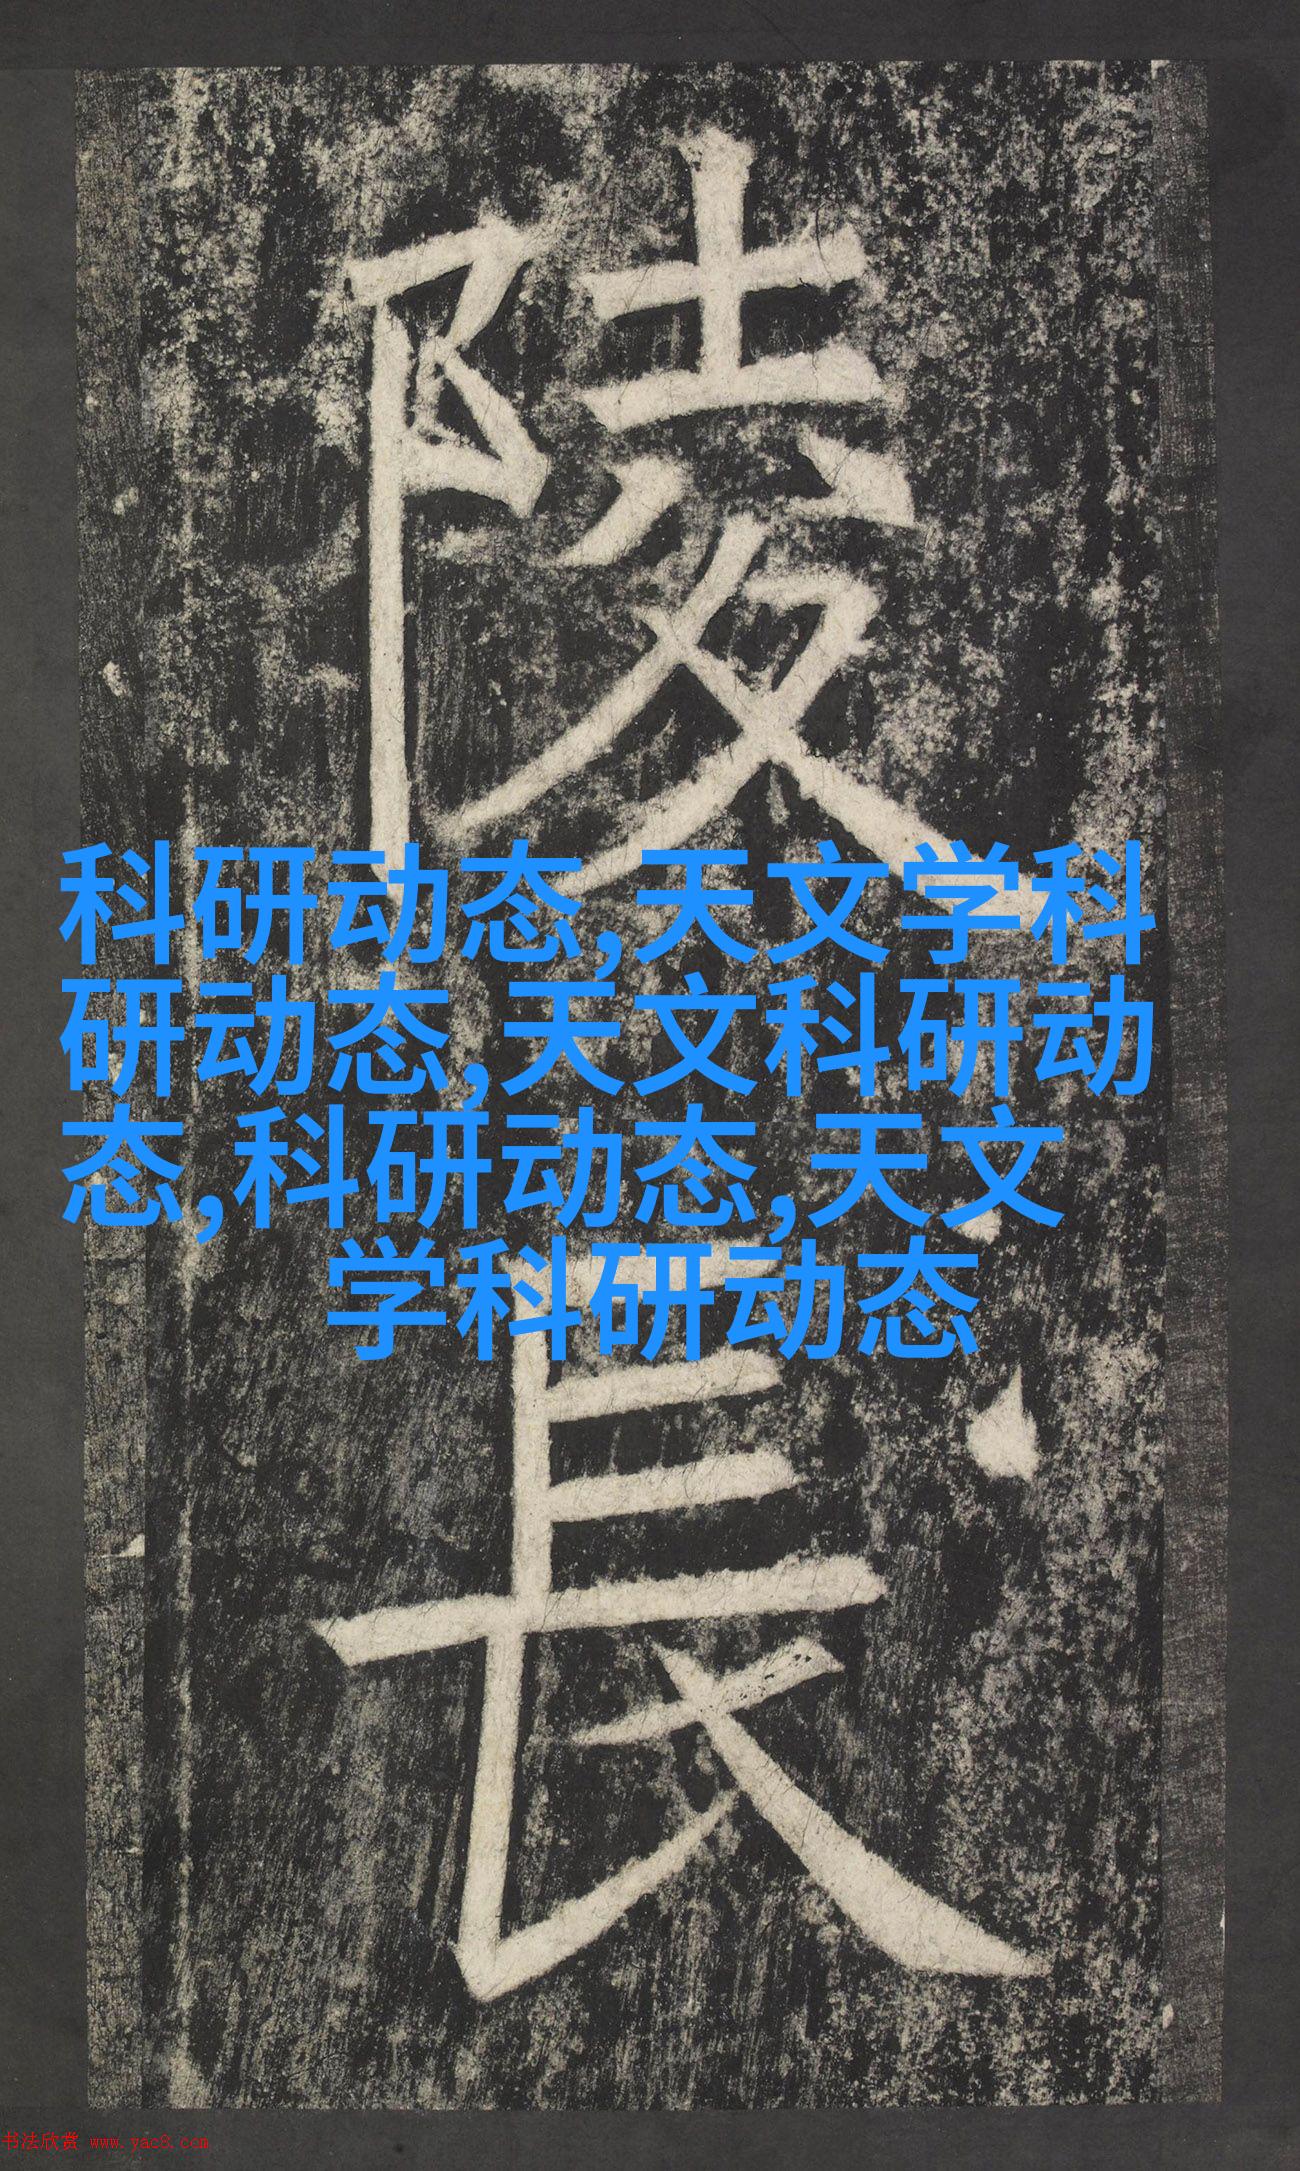 陵
科研动态,天文学科
研动态,天文科研动
态,科研动态,天文
学科研动态
長
书法欣赏 www.yac8.com